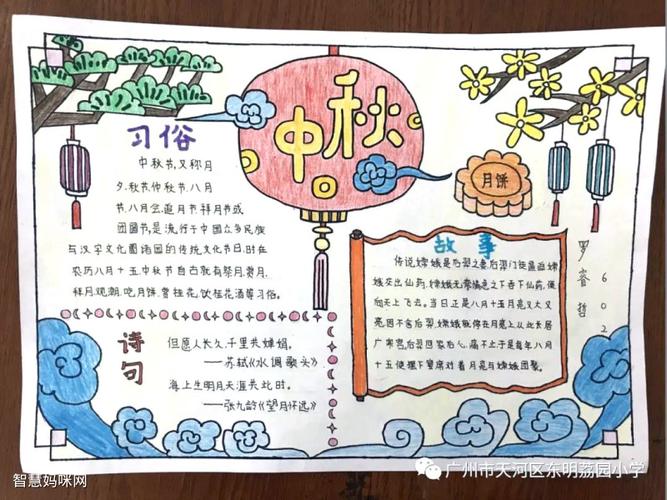 中秋
习俗
中秋节,又称月
夕、秋节、仲秋节、八月
节、八月会、追月节、拜月节或
团圆节,是流行于中国众多民族
与汉字文化圈诸国的传统文化节日,时在
农历八月十五中秋节自古就有祭月、赏月、
拜月、观潮、吃月饼、赏桂花、饮桂花酒等习俗。
诗句
但愿人长久,千里共婵娟。
——苏轼《水调歌头》
海上生明月天涯共此时。
——张九龄《望月怀远》
月饼
故事
传说,嫦娥是后羿之妻,后羿门徒逼迫嫦
娥交出仙药,嫦娥无奈情急之下吞下仙药,便
向天上飞去。当日正是八月十五月亮又大又
亮因不舍后羿,嫦娥就停在月亮上从此长居
广寒宫,后羿回家后心痛不止于是每年八月
十五便摆下宴席对着月亮与嫦娥团聚。
罗睿哲
602
智慧妈咪网
广州市天河区东明荔园小学